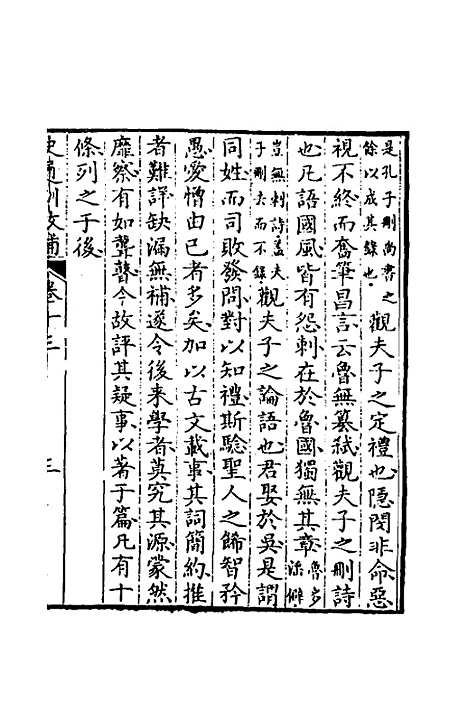 是孔子刪尚書之
餘以成其錄也
觀夫子之定禮也隱閔非命惡
視不終而奮筆昌言云魯無篡弒觀夫子之刪詩
也凡語國風皆有怨刺在於魯國獨無其章
魯多淫僻
豈無刺詩蓋夫
子刪去而不錄
觀夫子之論語也君娶於吳是謂
同姓而司敗發問對以知禮斯驗聖人之飾智矜
愚愛憎由已者多矣加以古文載事其詞簡約推
者難詳缺漏無補遂令後來學者莫究其源蒙然
靡察有如聾瞽今故評其疑事以著于篇凡有十
條列之于後
史通訓故補
卷十三
三